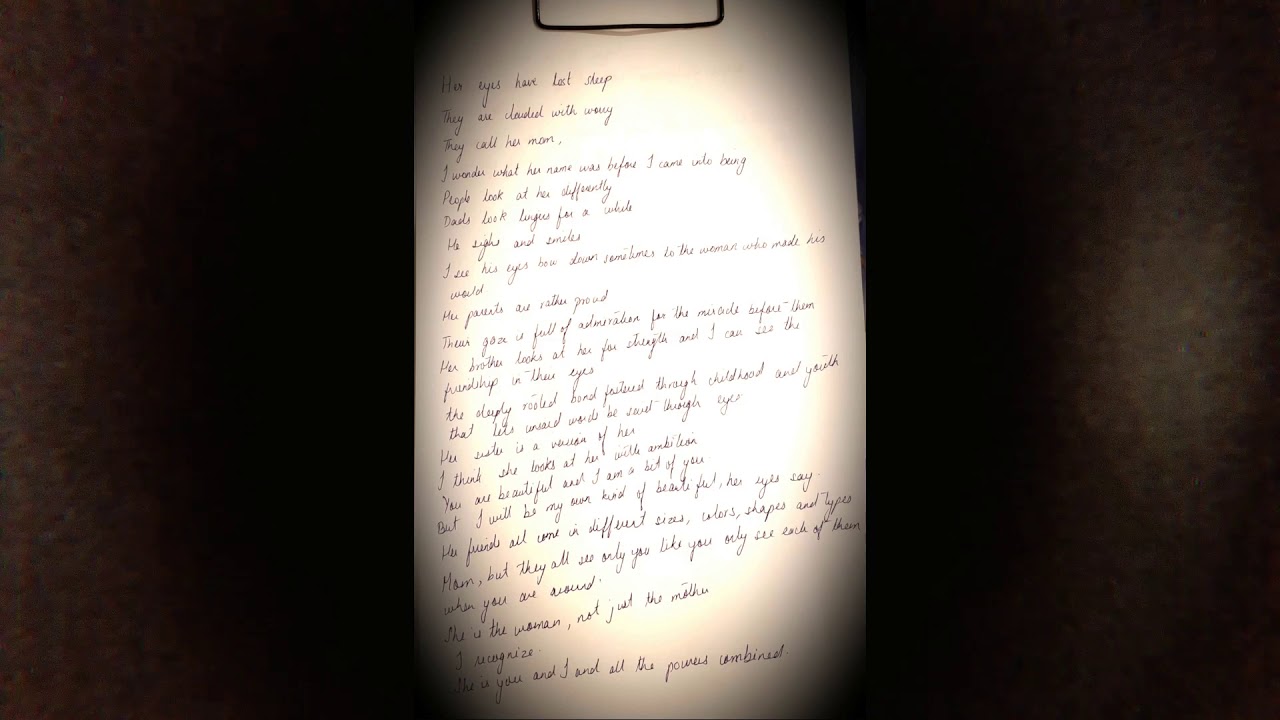 Her eyes have lost sleep
They are clouded with worry
They call her mom,
I wonder what her name was before I came into being
People look at her differently
Dads look lingers for a while
He sighs and smiles
I see his eyes bow down sometimes to the woman who made his
world
Her parents are rather proud
Their gaze is full of admiration for the miracle before them
Her brother looks at her for strength and I can see the
friendship in their eyes
the deeply rooted bond fostered through childhood and youth
that lets unsaid words be said through eyes.
Her sister is a version of her
I think she looks at her with ambition
You are beautiful and I am a bit of you.
But I will be my own kind of beautiful, her eyes say.
Her friends all come in different sizes, colors, shapes and types
Mom, but they all see only you like you only see each of them
when you are around.
She is the woman, not just the mother
I recognize.
She is you and I and all the powers combined.